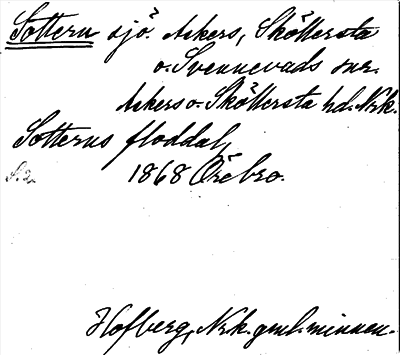 Sottern sjö. Askers, Sköllersta
o. Svennevads snr.
Askers o. Sköllersta hd. Nrk.
Sotterns floddal,
s. 2. 1868 Örebro.
Hofberg, Nrk. gml. minnen.